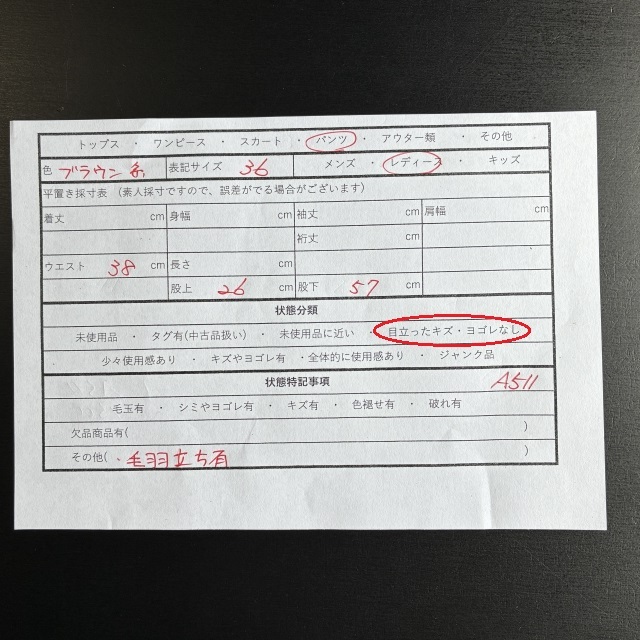 トップス ・ ワンピース ・ スカート ・ パンツ ・ アウター類 ・ その他
色 ブラウン系 表記サイズ 36 メンズ ・ レディース ・ キッズ
平置き採寸表 （素人採寸ですので、誤差がでる場合がございます）
着丈 cm 身幅 cm 袖丈 cm 肩幅 cm
裄丈 cm
ウエスト 38 cm 長さ cm
股上 26 cm 股下 57 cm
状態分類
未使用品 ・ タグ有(中古品扱い) ・ 未使用品に近い ・ 目立ったキズ・ヨゴレなし
少々使用感あり ・ キズやヨゴレ有 ・全体的に使用感あり ・ ジャンク品
状態特記事項 A511
毛玉有 ・ シミやヨゴレ有 ・ キズ有 ・ 色褪せ有 ・ 破れ有
欠品商品有( )
その他( ・毛羽立ち有 )